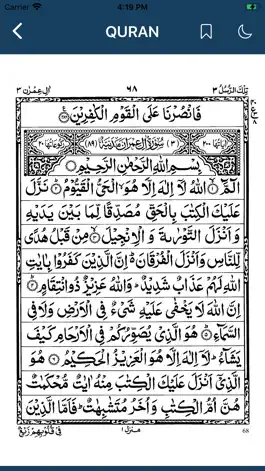 4:19 PM
QURAN
اٰلِ عِمْرٰن ٣
٦٨
تِلْكَ الرُّسُلُ ٣
فَانْصُرْنَا عَلَى الْقَوْمِ الْكٰفِرِيْنَ
بِسْمِ اللّٰهِ الرَّحْمٰنِ الرَّحِيْمِ
الٓمَّٓ ۚ اللّٰهُ لَاۤ اِلٰهَ اِلَّا هُوَ ۙ الْحَىُّ الْقَيُّوْمُ ؕ نَزَّلَ
عَلَيْكَ الْكِتٰبَ بِالْحَقِّ مُصَدِّقًا لِّمَا بَيْنَ يَدَيْهِ
وَ اَنْزَلَ التَّوْرٰىةَ وَ الْاِنْجِيْلَ ۙ مِنْ قَبْلُ هُدًى
لِّلنَّاسِ وَاَنْزَلَ الْفُرْقَانَ ؕ اِنَّ الَّذِيْنَ كَفَرُوْا بِاٰيٰتِ
اللّٰهِ لَهُمْ عَذَابٌ شَدِيْدٌ ؕ وَاللّٰهُ عَزِيْزٌ ذُو انْتِقَامٍ ؕ
اِنَّ اللّٰهَ لَا يَخْفٰى عَلَيْهِ شَىْءٌ فِى الْاَرْضِ وَلَا فِى
السَّمَآءِ ؕ هُوَ الَّذِىْ يُصَوِّرُكُمْ فِى الْاَرْحَامِ كَيْفَ
يَشَآءُ ؕ لَاۤ اِلٰهَ اِلَّا هُوَ الْعَزِيْزُ الْحَكِيْمُ هُوَ
الَّذِىْۤ اَنْزَلَ عَلَيْكَ الْكِتٰبَ مِنْهُ اٰيٰتٌ مُّحْكَمٰتٌ
هُنَّ اُمُّ الْكِتٰبِ وَ اُخَرُ مُتَشٰبِهٰتٌ ؕ فَاَمَّا الَّذِيْنَ
فِىْ قُلُوْبِهِمْ زَيْغٌ
منزل ١
68